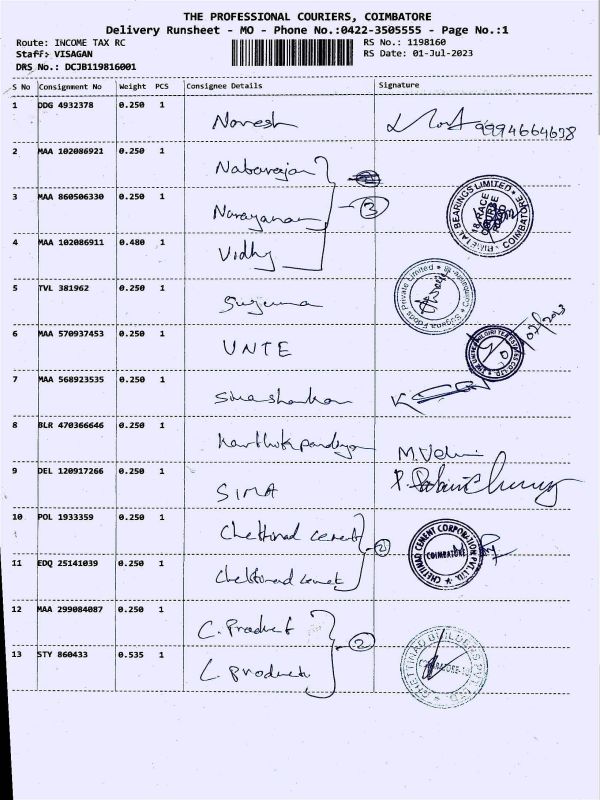 THE PROFESSIONAL COURIERS, COIMBATORE
Delivery Runsheet - MO - Phone No.:0422-3505555 - Page No.:1
Route: INCOME TAX RC RS No.: 1198160
Staff: VISAGAN RS Date: 01-Jul-2023
DRS No.: DCJB119816001
S No Consignment No Weight PCS Consignee Details Signature
1 DDG 4932378 0.250 1 Naresh 9994664678
2 MAA 102086921 0.250 1
3 MAA 860506330 0.250 1 Narayanan 3
BEARINGS LIMITED COIMBATORE
4 MAA 102086911 0.480 1 Vidhy
5 TVL 381962 0.250 1 Suguna
Suguna Foods Private Limited
6 MAA 570937453 0.250 1 UNTE
7 MAA 568923535 0.250 1
8 BLR 470366646 0.250 1 M.
9 DEL 120917266 0.250 1 SIMA
10 POL 1933359 0.250 1 Chettinad cement 2
CHETTINAD CEMENT CORPORATION PVT. LTD. COIMBATORE
11 EDQ 25141039 0.250 1 Chettinad cement
12 MAA 299084087 0.250 1 C. Product 2
13 STY 860433 0.535 1 product
CHETTINAD BUILDERS PVT. LTD.